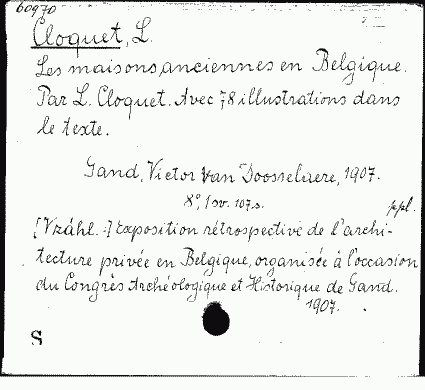 60970
Cloquet, L.
Les maisons anciennes en Belgique.
Par L. Cloquet. Avec 78 illustrations dans
le texte.
Gand, Victor Van Doosselaere, 1907.
8°, 1 sv. 107 s.
ppl.
[Vzáhl.:] Exposition rétrospective de l'archi-
tecture privée en Belgique, organisée à l'occasion
du Congrès Archéologique et Historique de Gand.
1907.
S